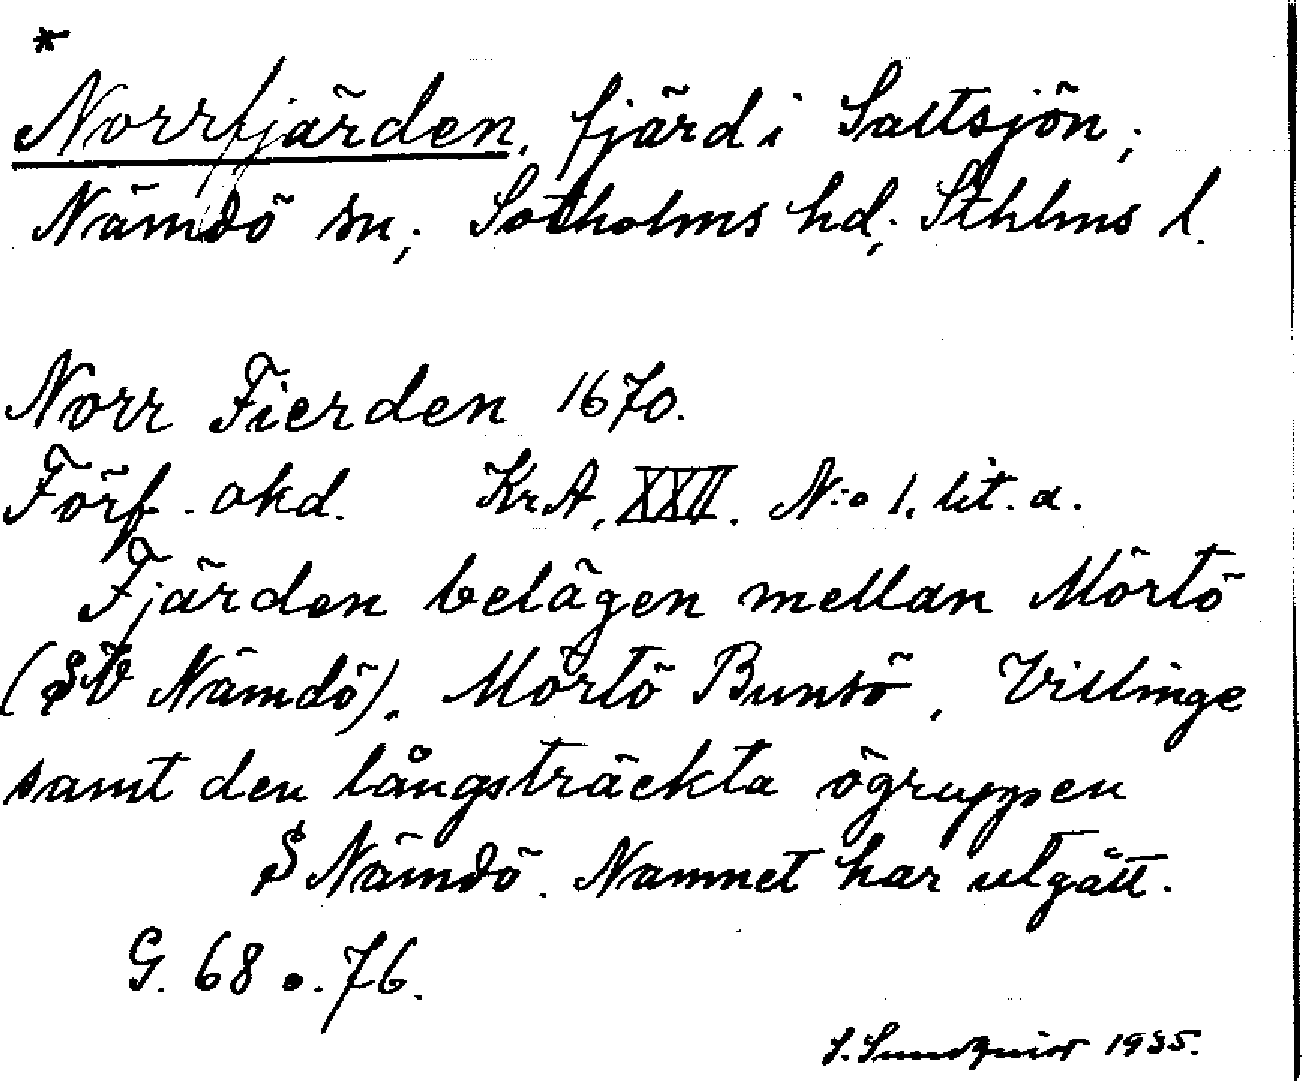 *
Norrfjärden, fjärd i Saltsjön;
Nämdö sn; Sotholms hd; Sthlms l.
Norr Fierden 1670.
Förf. okd. KrA, XXII. N:o 1. lit. a.
Fjärden belägen mellan Mörtö
(SV Nämdö), Mörtö Bunsö, Villinge
samt den långsträckta ögruppen
S Nämdö. Namnet har utgått.
G. 68 o. 76.
S. Sundqvist 1935.